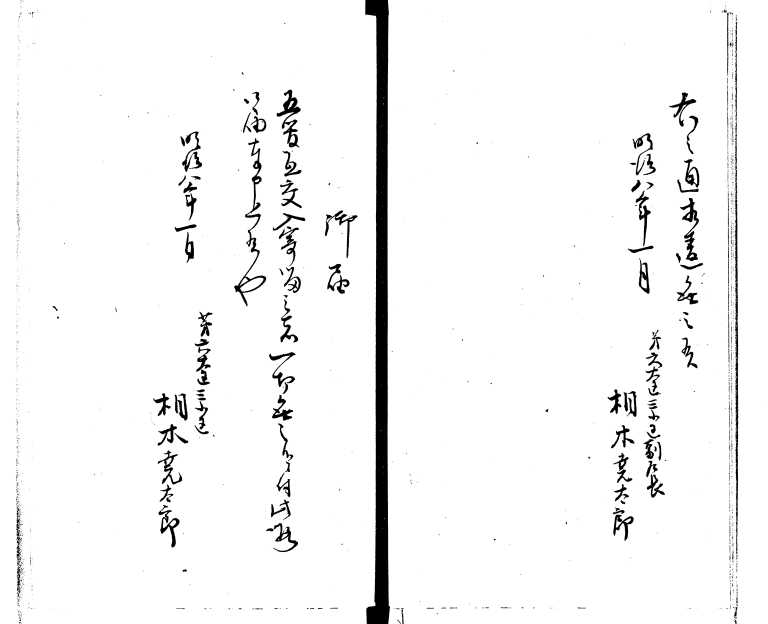 右之通相違無之候
明治八年一月
第六大区三小区副戸長
相木堯太郎
御届
当区内入寄留之者一切無之候ニ付此段
以届奉申上候也
明治八年一月
第六大区三小区
相木堯太郎